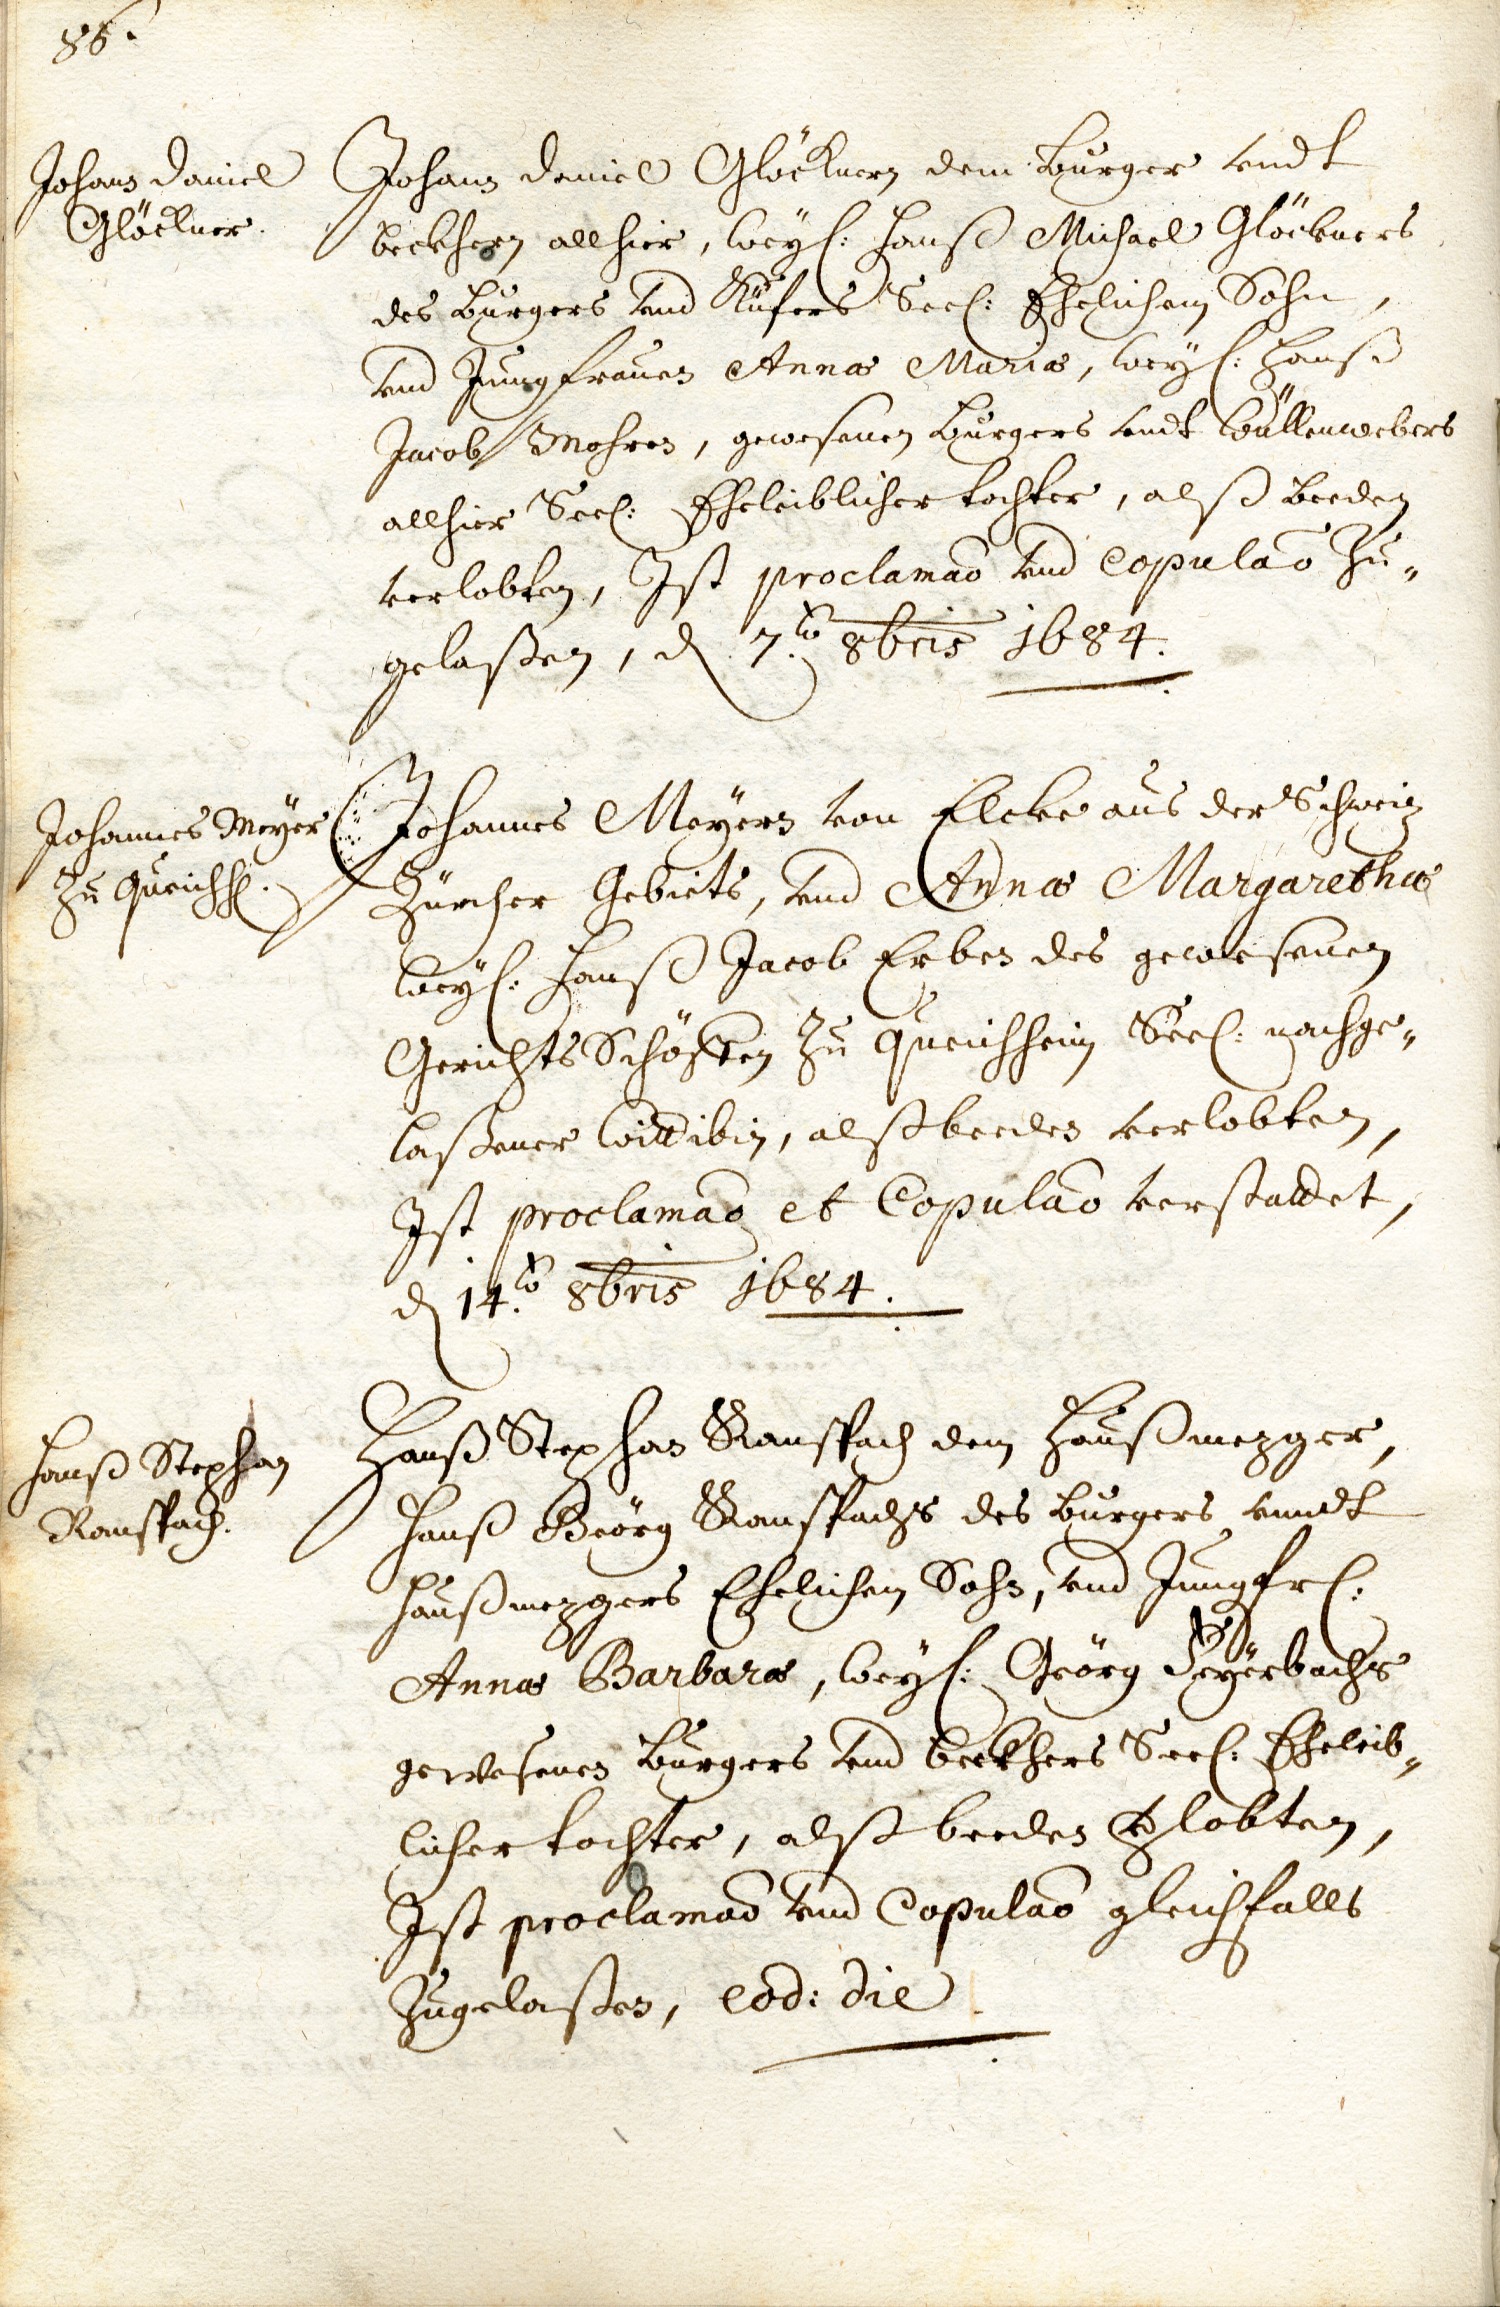 86.
Johann Daniel
Glöckner.
Johann Daniel Glöcknern dem Burger vndt
beckhern allhier, weyl: Hanß Michael Glöckners
des Burgers vnd Küfers Seel: Ehelichem Sohn,
vnd Jungfrauen Annæ Mariæ, weyl: Hanß
Jacob Mohren, gewesenen Burgers vndt wüllenwebers
allhier Seel: Eheleiblicher tochter, alß beeden
verlobten, Ist proclamaõ vnd Copulaõ Zu„
gelaßen, d 7.to 8bris 1684.
Johannes Meyer
Zu Queichh.
Johannes Meyern von Elcke aus der Schweiz
Zürcher Gebiets, vnd Annæ Margarethæ
weyl: Hanß Jacob Erben des gewesenen
Gerichts Schöffen Zu Queichheim Seel: nachge„
laßener wittibin, alß beeden verlobten,
Ist proclamaõ et Copulaõ verstattet,
d 14.to 8bris 1684.
Hanß Stephan
Ranspach.
Hanß Stephan Ranspach dem Haußmezger,
Hanß Geörg Ranspachs des Burgers vnndt
Haußmezgers Ehelichem Sohn, vnd Jungfrl:
Annæ Barbaræ, weyl: Geörg Feyerbachs
gewesenen Burgers vnd beckhers Seel: Eheleib„
licher tochter, alß beeden Vlobten,
Ist proclamaõ vnd Copulaõ gleichfalls
Zugelaßen, eod: die